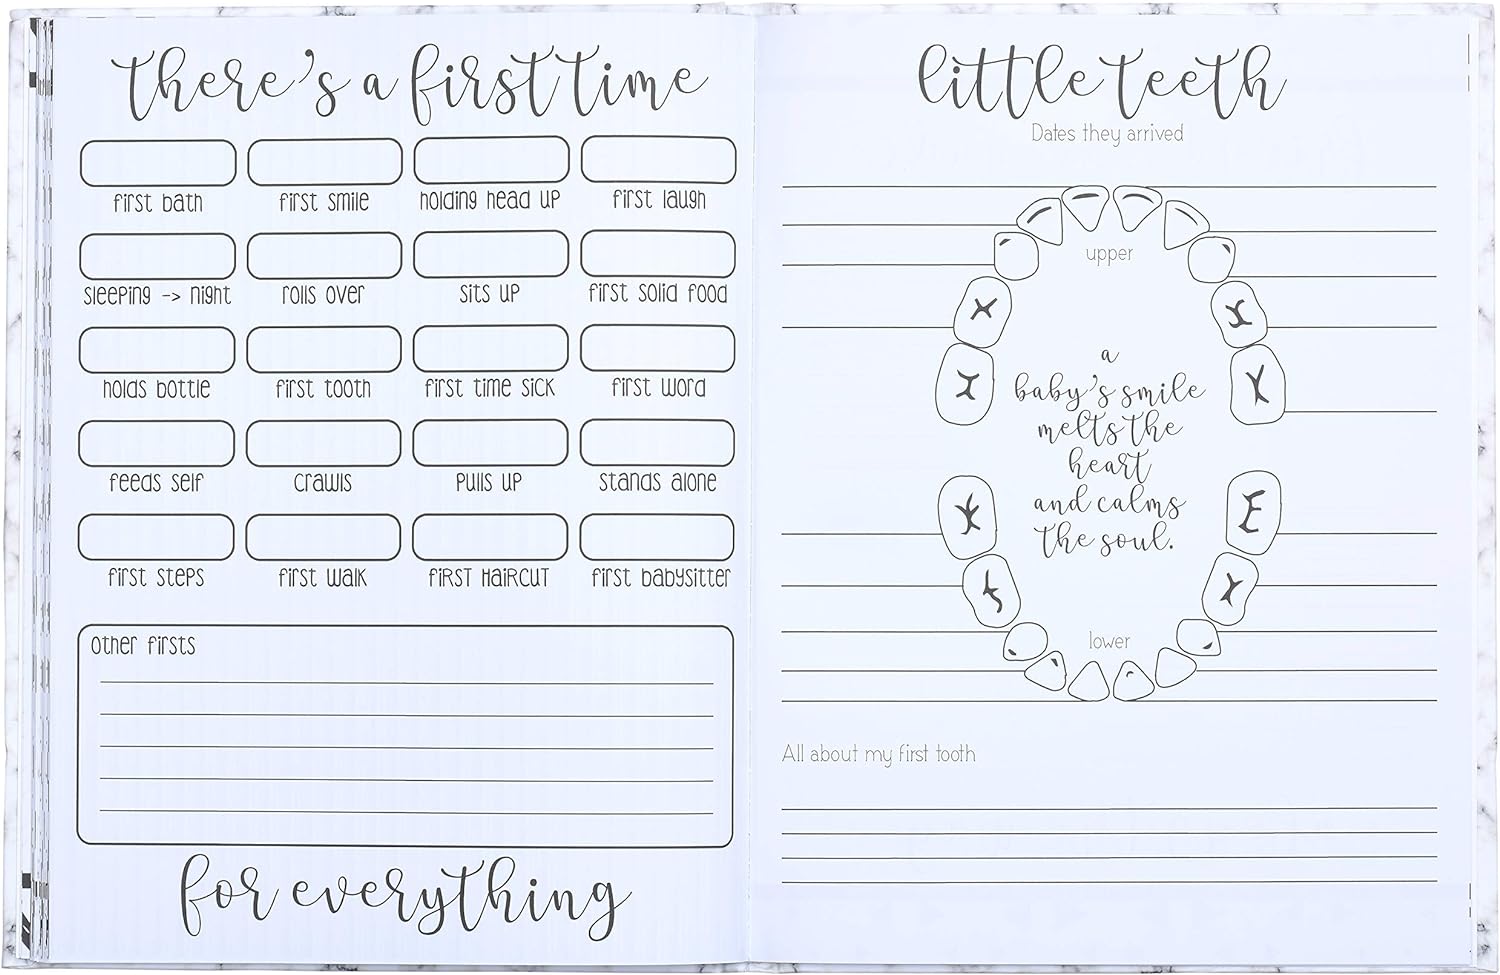 there's a first time
first bath first smile holding head up first laugh
sleeping -> night rolls over sits up first solid food
holds bottle first tooth first time sick first word
feeds self crawls pulls up stands alone
first steps first walk first haircut first babysitter
Other firsts
for everything
little teeth
Dates they arrived
upper
a
baby's smile
melts the
heart
and calms
the soul.
lower
All about my first tooth